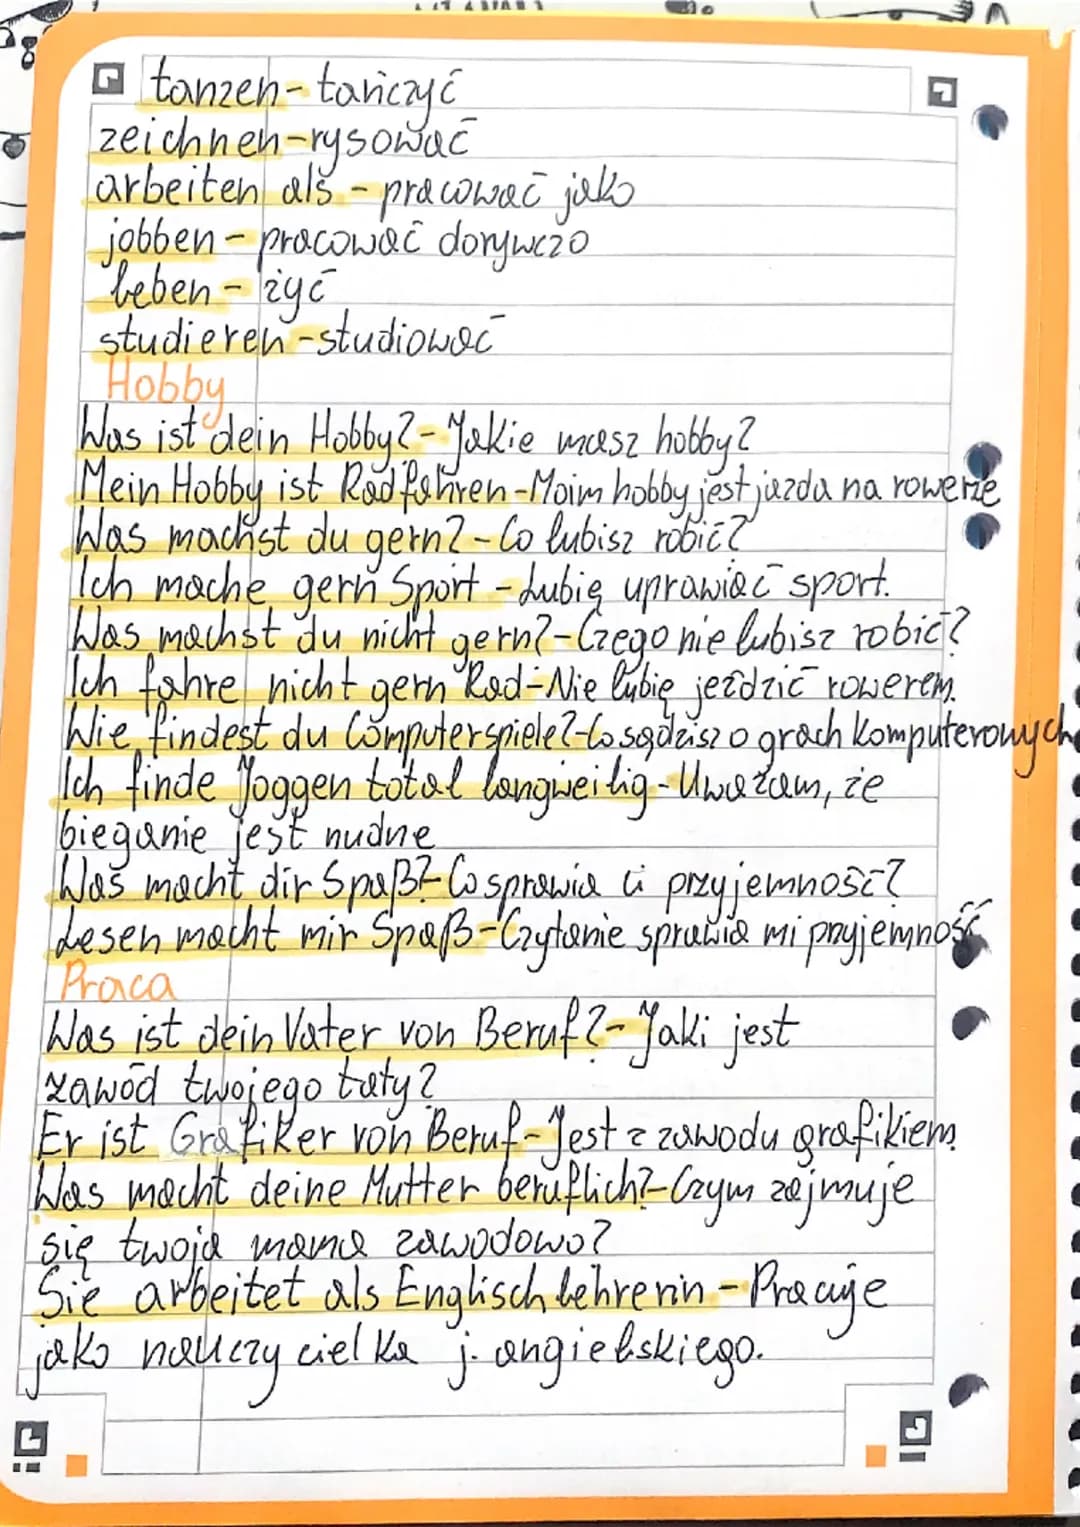 tanzen - tańczyć
zeichnen - rysować
arbeiten als - pracować jako
jobben - pracować dorywczo
leben - żyć
studieren - studiować
Hobby
Was ist dein Hobby? - Jakie masz hobby?
Mein Hobby ist Radfahren - Moim hobby jest jazda na rowerze
Was machst du gern? - Co lubisz robić?
Ich mache gern Sport - Lubię uprawiać sport.
Was machst du nicht gern? - Czego nie lubisz robić?
Ich fahre nicht gern Rad - Nie lubię jeździć rowerem.
Wie findest du Computerspiele? - Co sądzisz o grach komputerowych
Ich finde Joggen total langweilig - Uważam, że
bieganie jest nudne
Was macht dir Spaß? - Co sprawia ci przyjemność?
Lesen macht mir Spaß - Czytanie sprawia mi przyjemność
Praca
Was ist dein Vater von Beruf? - Jaki jest
zawód twojego taty?
Er ist Grafiker von Beruf - Jest z zawodu grafikiem.
Was macht deine Mutter beruflich? - Czym zajmuje
się twoja mama zawodowo?
Sie arbeitet als Englischlehrerin - Pracuje
jako nauczycielka j. angielskiego.